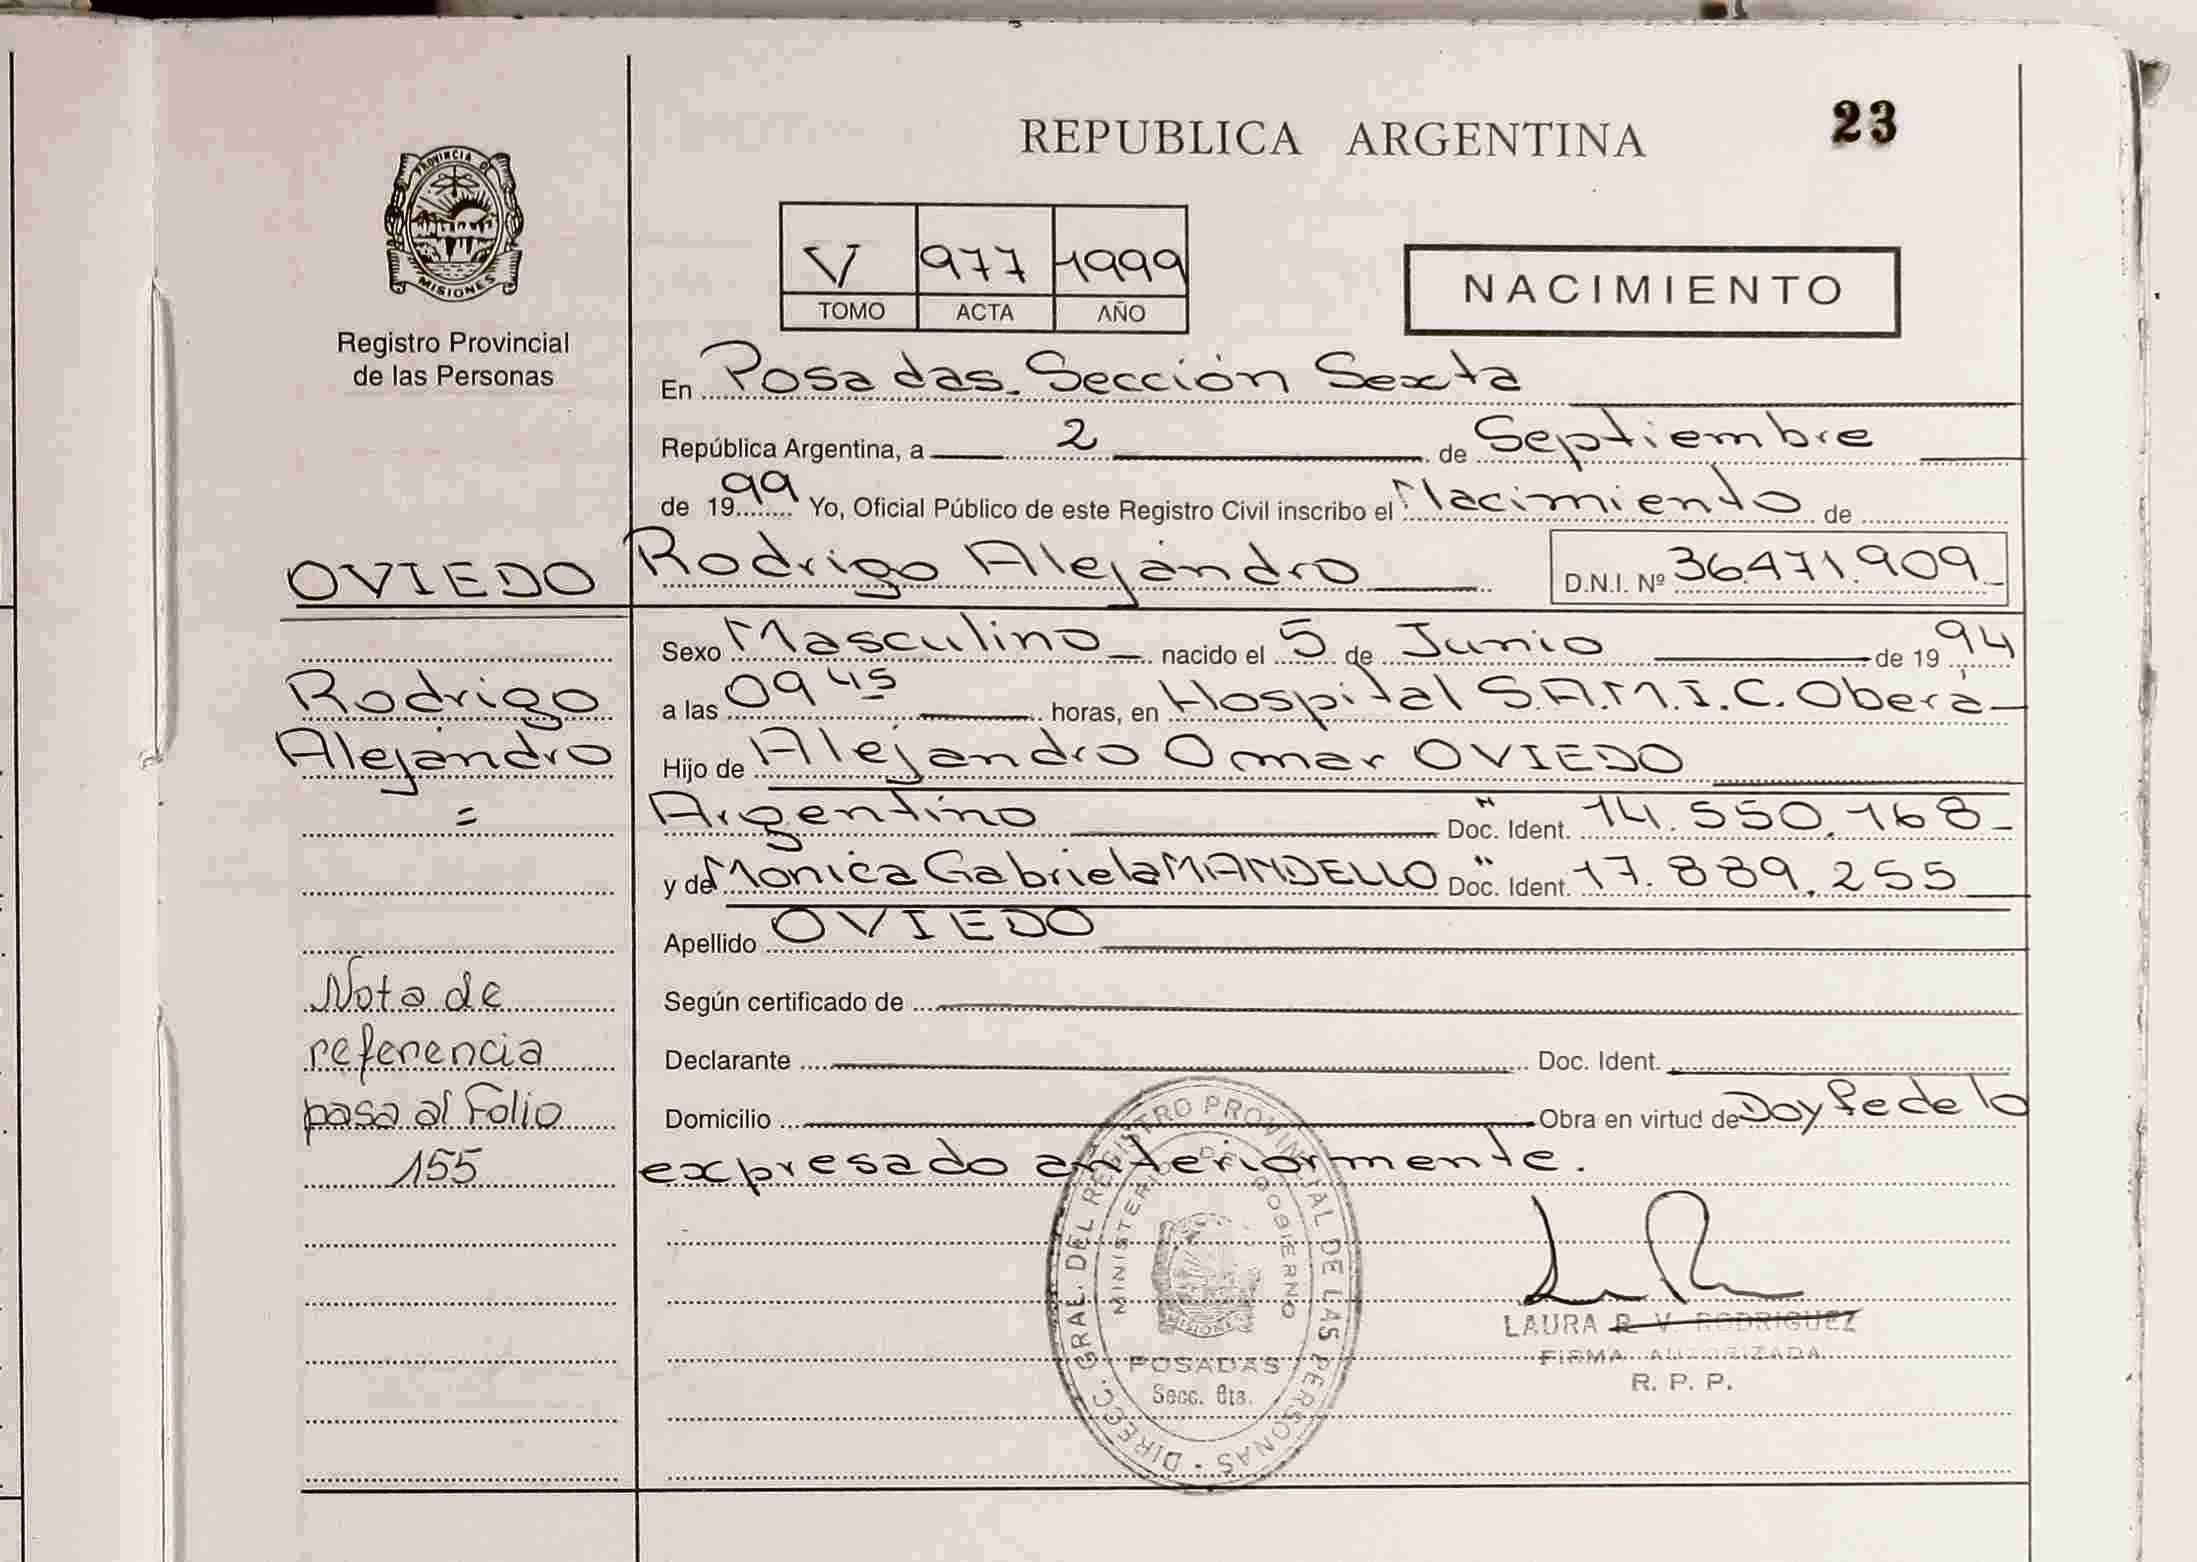 23
REPUBLICA ARGENTINA
PROVINCIA DE
MISIONES
Registro Provincial
de las Personas
V 977 1999
TOMO ACTA AÑO
NACIMIENTO
En Posadas. Sección Sexta
República Argentina, a 2 de Septiembre
de 1999 Yo, Oficial Público de este Registro Civil inscribo el Nacimiento de
OVIEDO Rodrigo Alejandro D.N.I. Nº 36.471.909
Sexo Masculino nacido el 5 de Junio de 1994
a las 09 45 horas, en Hospital S.A.M.I.C. Oberá
Hijo de Alejandro Omar OVIEDO
Argentino Doc. Ident. " 14.550.168
y de Monica Gabriela MANDELLO Doc. Ident. " 17.889.255
Apellido OVIEDO
Según certificado de
Declarante Doc. Ident.
Domicilio Obra en virtud de Doy fe de lo
expresado anteriormente.
Rodrigo
Alejandro
=
Nota de
referencia
pasa al Folio
155
DIREC. GRAL. DEL REGISTRO PROVINCIAL DE LAS PERSONAS
MINISTERIO DE GOBIERNO
MISIONES
POSADAS
Secc. 6ta.
LAURA R. V. RODRIGUEZ
FIRMA AUTORIZADA
R. P. P.